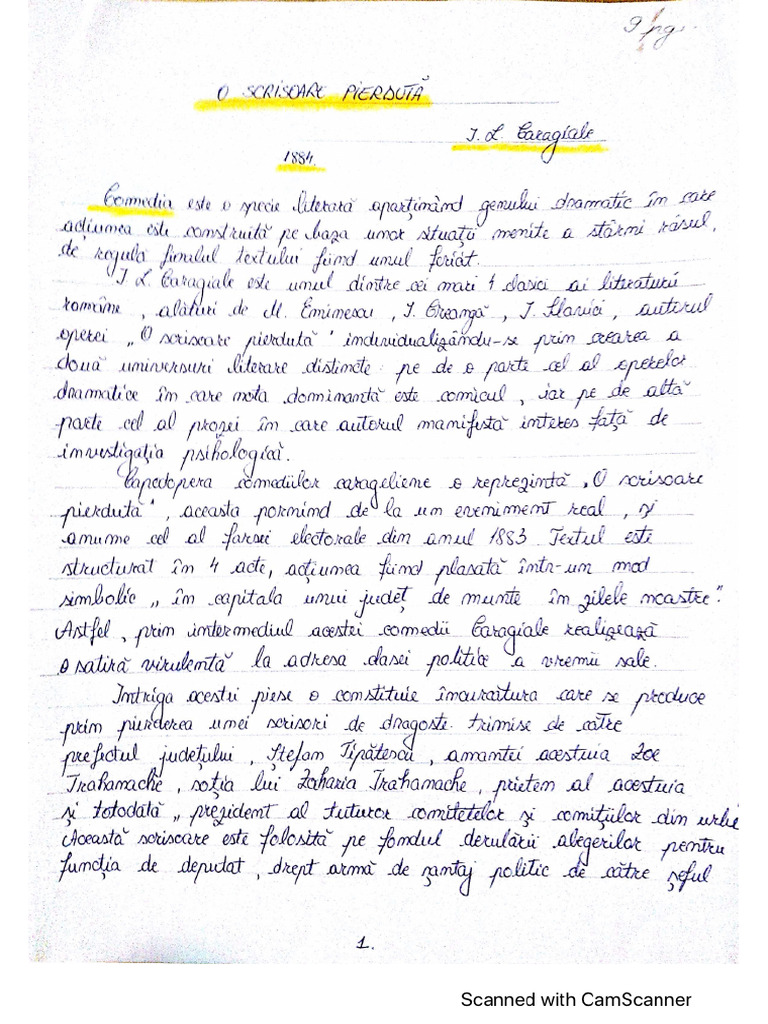 9 pg.
O SCRISOARE PIERDUTĂ
I. L. Caragiale
1884.
Comedia este o specie literară aparținând genului dramatic în care
acțiunea este construită pe baza unor situații menite a stârni râsul,
de regulă finalul textului fiind unul fericit.
I L. Caragiale este unul dintre cei mari 4 clasici ai literaturii
române, alături de M. Eminescu, I. Creangă, I. Slavici, autorul
operei „O scrisoare pierdută" individualizându-se prin crearea a
două universuri literare distincte: pe de o parte cel al operelor
dramatice în care nota dominantă este comicul, iar pe de altă
parte cel al prozei în care autorul manifestă interes față de
investigația psihologică.
Capodopera comediilor carageliene o reprezintă „O scrisoare
pierdută", aceasta pornind de la un eveniment real, și
anume cel al farsei electorale din anul 1883 Textul este
structurat în 4 acte, acțiunea fiind plasată într-un mod
simbolic „în capitala unui județ de munte în zilele noastre".
Astfel, prin intermediul acestei comedii Caragiale realizează
o satiră virulentă la adresa clasei politice a vremii sale.
Intriga acestei piese o constituie încurcătura care se produce
prin pierderea unei scrisori de dragoste trimise de către
prefectul județului, Ștefan Tipătescu, amantei acestuia Zoe
Trahanache, soția lui Zaharia Trahanache, prieten al acestuia
și totodată „prezident al tuturor comitetelor și comițiilor din urbe
Această scrisoare este folosită pe fondul derulării alegerilor pentru
funcția de deputat, drept armă de șantaj politic de către șeful
1.
Scanned with CamScanner